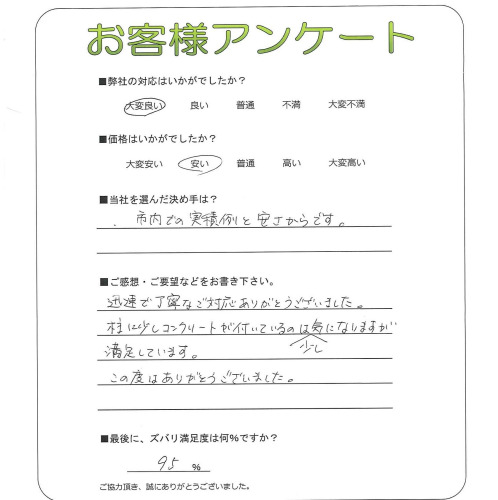 お客様アンケート
■弊社の対応はいかがでしたか?
大変良い 良い 普通 不満 大変不満
■価格はいかがでしたか?
大変安い 安い 普通 高い 大変高い
■当社を選んだ決め手は?
.市内での実積例と安さからです。
■ご感想・ご要望などをお書き下さい。
迅速で丁寧なご対応ありがとうございました。
柱に少しコンクリートが付いているのは気になりますが
少し
満足しています。
この度はありがとうございました。
■最後に、ズバリ満足度は何%ですか?
95 %
ご協力頂き、誠にありがとうございました。